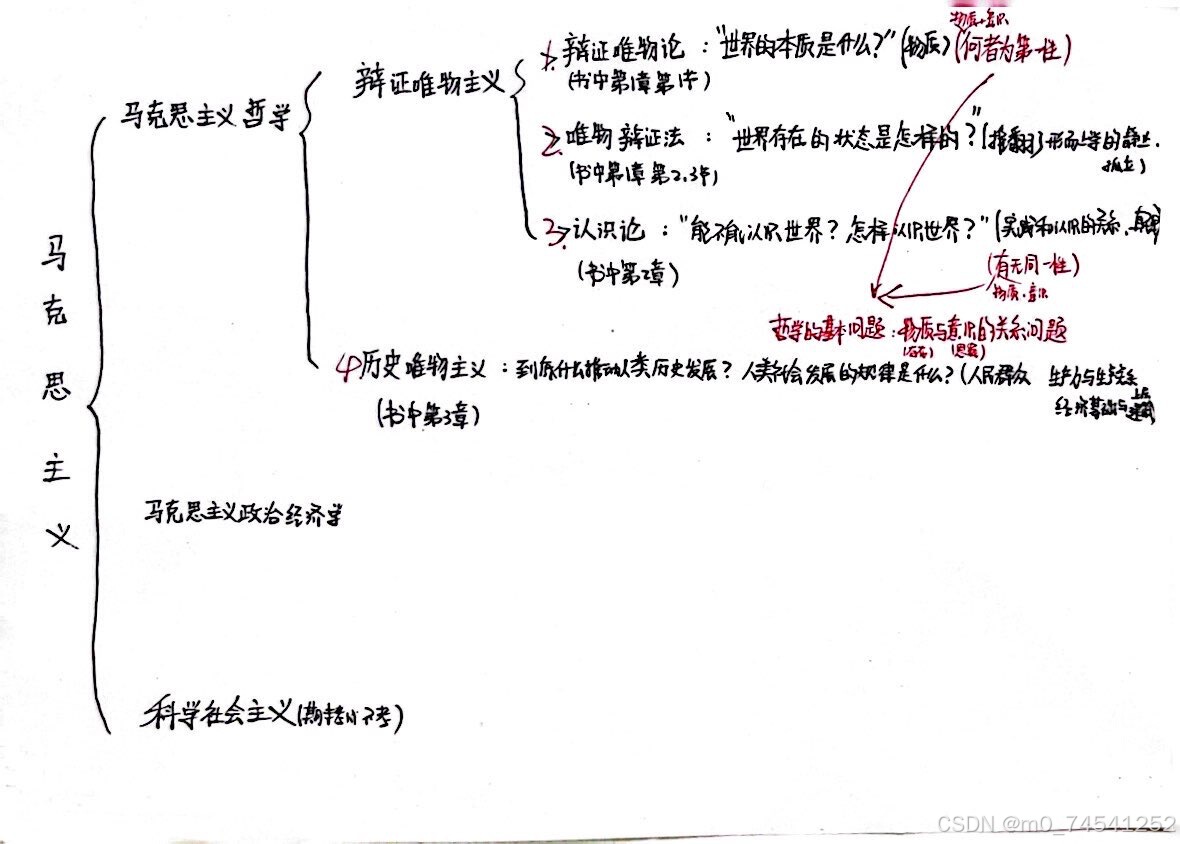 物质、意识
1. 辩证唯物论：“世界的本质是什么？”(物质)(何者为第一性)
(书中第1章第1节)
马克思主义哲学
辩证唯物主义
2. 唯物辩证法：“世界存在的状态是怎样的？”(推翻了形而上学的静止、
孤立)
(书中第1章第2.3节)
3. 认识论：“能不能认识世界？怎样认识世界？”(实践和认识的关系、真理
(书中第2章)
(有无同一性)
物质、意识
哲学的基本问题：物质与意识的关系问题
(存在) (思维)
4 历史唯物主义：到底什么推动人类历史发展？人类社会发展的规律是什么？(人民群众 生产力与生产关系
经济基础与上层建筑
(书中第3章)
马克思主义
马克思主义政治经济学
科学社会主义(期末不考)
CSDN @m0_74541252